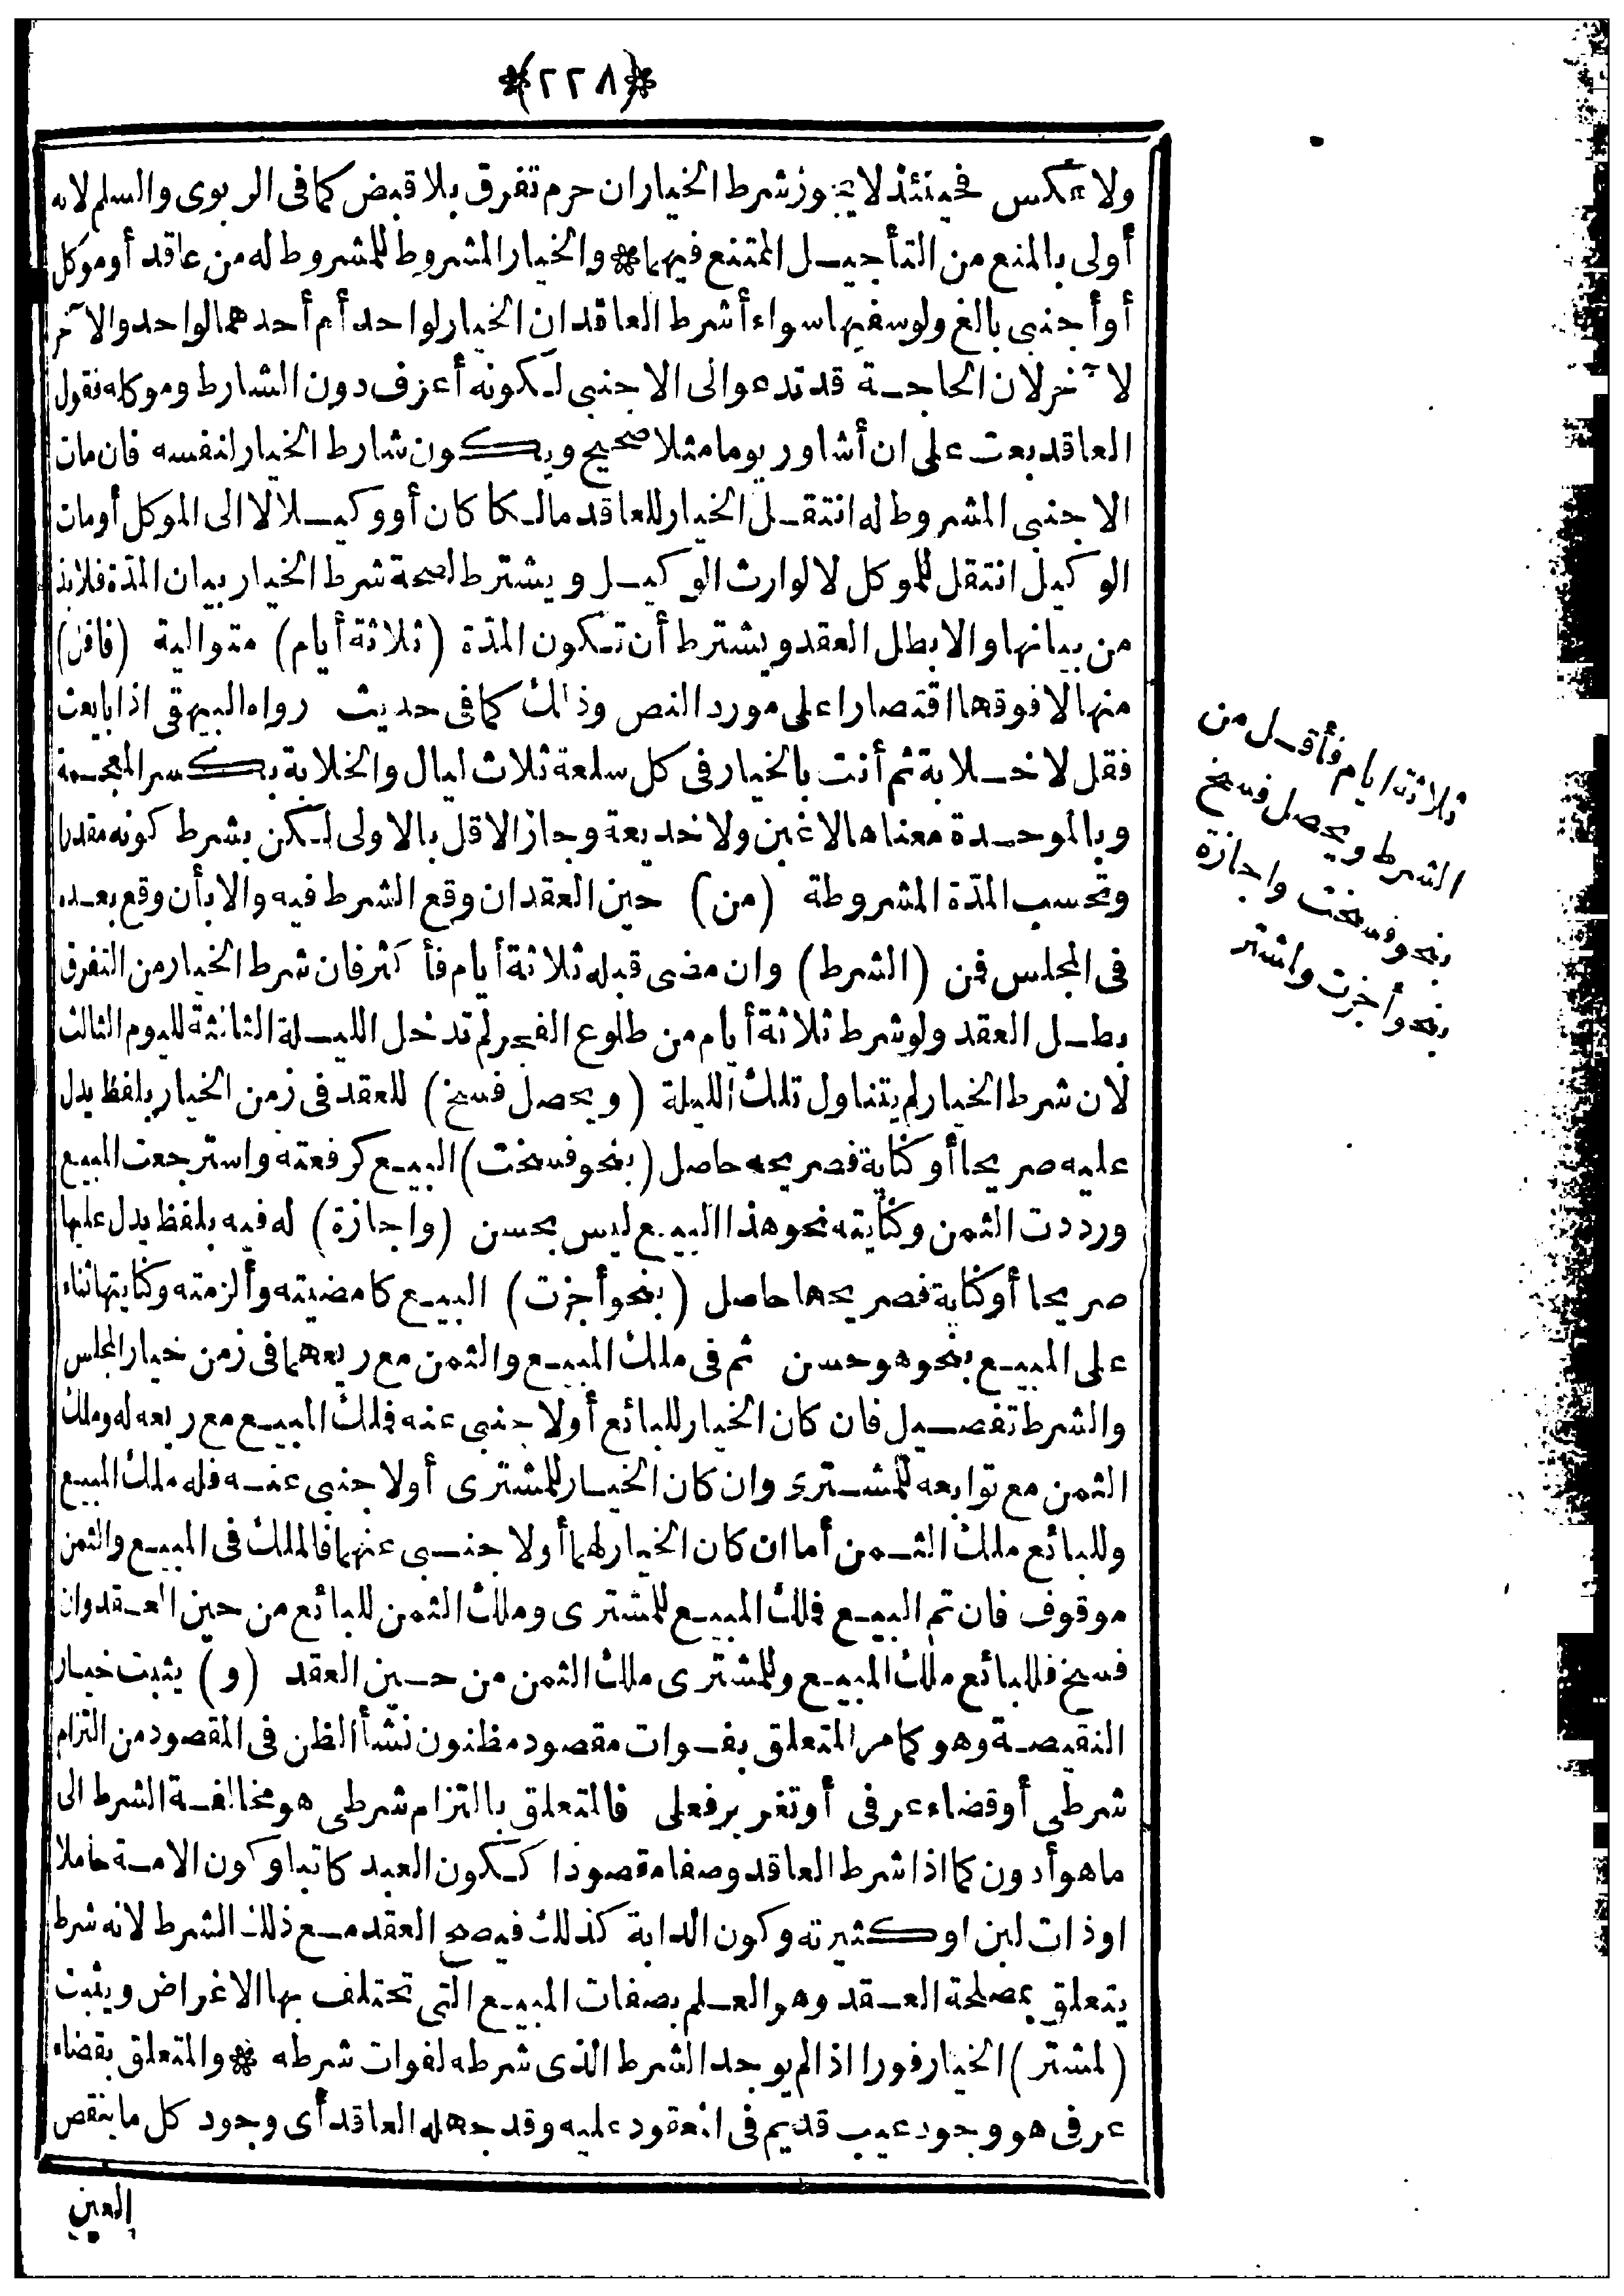 ﴿٢٢٨﴾
ولا عكس فحينئذ لا يجوز شرط الخيار ان حرم تفرق بلا قبض كما فى الربوى والسلم لانه
أولى بالمنع من التأجيل الممتنع فيهما * والخيار المشروط للمشروط له من عاقد أو موكل
أو أجنبى بالغ ولو سفيها سواء أشرط العاقدان الخيار لواحد أم أحدهما لواحد والا آخر
لا آخر لان الحاجة قد تدعو الى الاجنبى لكونه أعرف دون الشارط وموكله فقول
العاقد بعت على ان أشاور يوما مثلا صحيح ويكون شارط الخيار لنفسه فان مات
الاجنبى المشروط له انتقل الخيار للعاقد مالكا كان أو وكيلا لا الى الموكل أو مات
الوكيل انتقل للموكل لا لوارث الوكيل ويشترط لصحة شرط الخيار بيان المدة فلا بد
من بيانها والا بطل العقد ويشترط أن تكون المدة (ثلاثة أيام) متوالية (فاقل)
منها لا فوقها اقتصارا على مورد النص وذلك كما فى حديث رواه البيهقى اذا بايعت
فقل لا خلابة ثم أنت بالخيار فى كل سلعة ثلاث ليال والخلابة بكسر المعجمة
وبالموحدة معناها لا غبن ولا خديعة وجاز الاقل بالاولى لكن بشرط كونه مقدرا
وتحسب المدة المشروطة (من) حين العقد ان وقع الشرط فيه والا بأن وقع بعده
فى المجلس فمن (الشرط) وان مضى قبله ثلاثة أيام فأكثر فان شرط الخيار من التفرق
بطل العقد ولو شرط ثلاثة أيام من طلوع الفجر لم تدخل الليلة الثالثة لليوم الثالث
لان شرط الخيار لم يتناول تلك الليلة (ويحصل فسخ) للعقد فى زمن الخيار بلفظ يدل
عليه صريحا أو كناية فصريحه حاصل (بنحو فسخت) البيع كرفعته واسترجعت المبيع
ورددت الثمن وكنايته نحو هذا البيع ليس بحسن (واجازة) له فيه بلفظ يدل عليها
صريحا أو كناية فصريحها حاصل (بنحو أجزت) البيع كامضيته وألزمته وكنايتها ثناء
على المبيع بنحو هو حسن ثم فى ملك المبيع والثمن مع ريعهما فى زمن خيار المجلس
والشرط تفصيل فان كان الخيار للبائع أو لاجنبى عنه فملك المبيع مع ريعه له وملك
الثمن مع توابعه للمشترى وان كان الخيار للمشترى أو لاجنبى عنه فله ملك المبيع
وللبائع ملك الثمن أما ان كان الخيار لهما أو لاجنبى عنهما فالملك فى المبيع والثمن
موقوف فان تم البيع فملك المبيع للمشترى وملك الثمن للبائع من حين العقد وان
فسخ فللبائع ملك المبيع وللمشترى ملك الثمن من حين العقد (و) يثبت خيار
النقيصة وهو كما مر المتعلق بفوات مقصود مظنون نشأ الظن فى المقصود من التزام
شرطى أو قضاء عرفى أو تغرير فعلى فالمتعلق بالتزام شرطى هو مخالفة الشرط الى
ما هو أدون كما اذا شرط العاقد وصفا مقصودا ككون العبد كاتبا وكون الامة حاملا
او ذات لبن او كثيرته وكون الدابة كذلك فيصح العقد مع ذلك الشرط لانه شرط
يتعلق بمصلحة العقد وهو العلم بصفات المبيع التى تختلف بها الاغراض ويثبت
(لمشتر) الخيار فورا اذا لم يوجد الشرط الذى شرطه لفوات شرطه * والمتعلق بقضاء
عرفى هو وجود عيب قديم فى المعقود عليه وقد جهله العاقد أى وجود كل ما ينقص
العين
ثلاثة ايام فأقل من
الشرط ويحصل فسخ
بنحو فسخت واجازة
بنحو أجزت واشتر